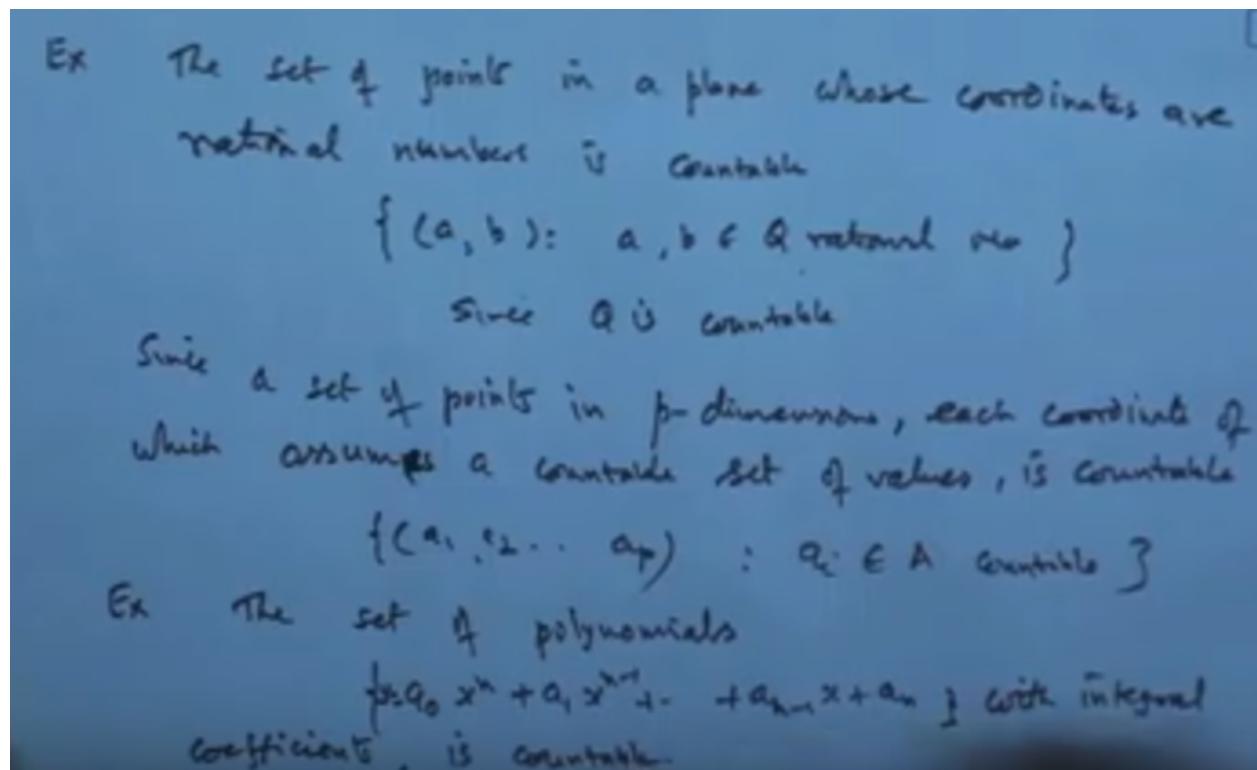 Ex The set of points in a plane whose coordinates are
rational numbers is countable
{ (a, b): a, b ∈ Q rational no }
Since Q is countable
Since a set of points in p-dimensions, each coordinate of
which assumes a countable set of values, is countable
{(a1, a2.. ap) : ai ∈ A countable }
Ex The set of polynomials
a0 x^n + a1 x^n-1 +.. + an-1 x + an } with integral
coefficients, is countable.